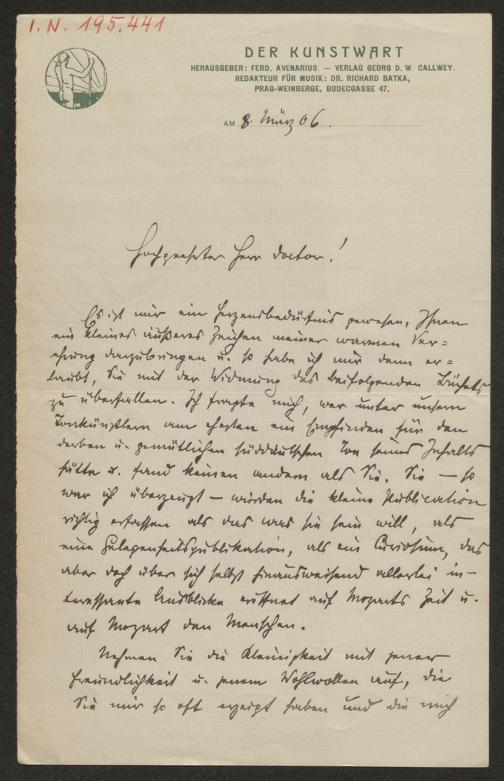 I.N. 195.441
DER KUNSTWART
HERAUSGEBER: FERD. AVENARIUS. — VERLAG GEORG D. W. CALLWEY.
REDAKTEUR FÜR MUSIK: DR. RICHARD BATKA,
PRAG-WEINBERGE, BUDECGASSE 47.
AM 8. März 06.
Hochgeehrter Herr Doctor!
Es ist mir ein Herzensbedürfnis gewesen, Ihnen
ein kleines äußeres Zeichen meiner warmen Ver=
ehrung darzubringen u. so habe ich mir denn er=
laubt, Sie mit der Widmung des beifolgenden Büchels
zu überfallen. Ich fragte mich, wer unter unsern
Tonkünstlern am ehesten ein Empfinden für den
derben u. gemütlichen süddeutschen Ton seines Inhalts
hätte u. fand keinen andern als Sie. Sie — so
war ich überzeugt — würden die kleine Publication
richtig erfassen als das was sie sein will, als
eine Gelegenheitspublikation, als ein Curiosum, das
aber doch über sich selbst hinausweisend allerlei in=
teressante Ausblicke eröffnet auf Mozarts Zeit u.
auf Mozart den Menschen.
Nehmen Sie die Kleinigkeit mit jener
Freundlichkeit u. jenem Wohlwollen auf, die
Sie mir so oft erzeigt haben und die mich